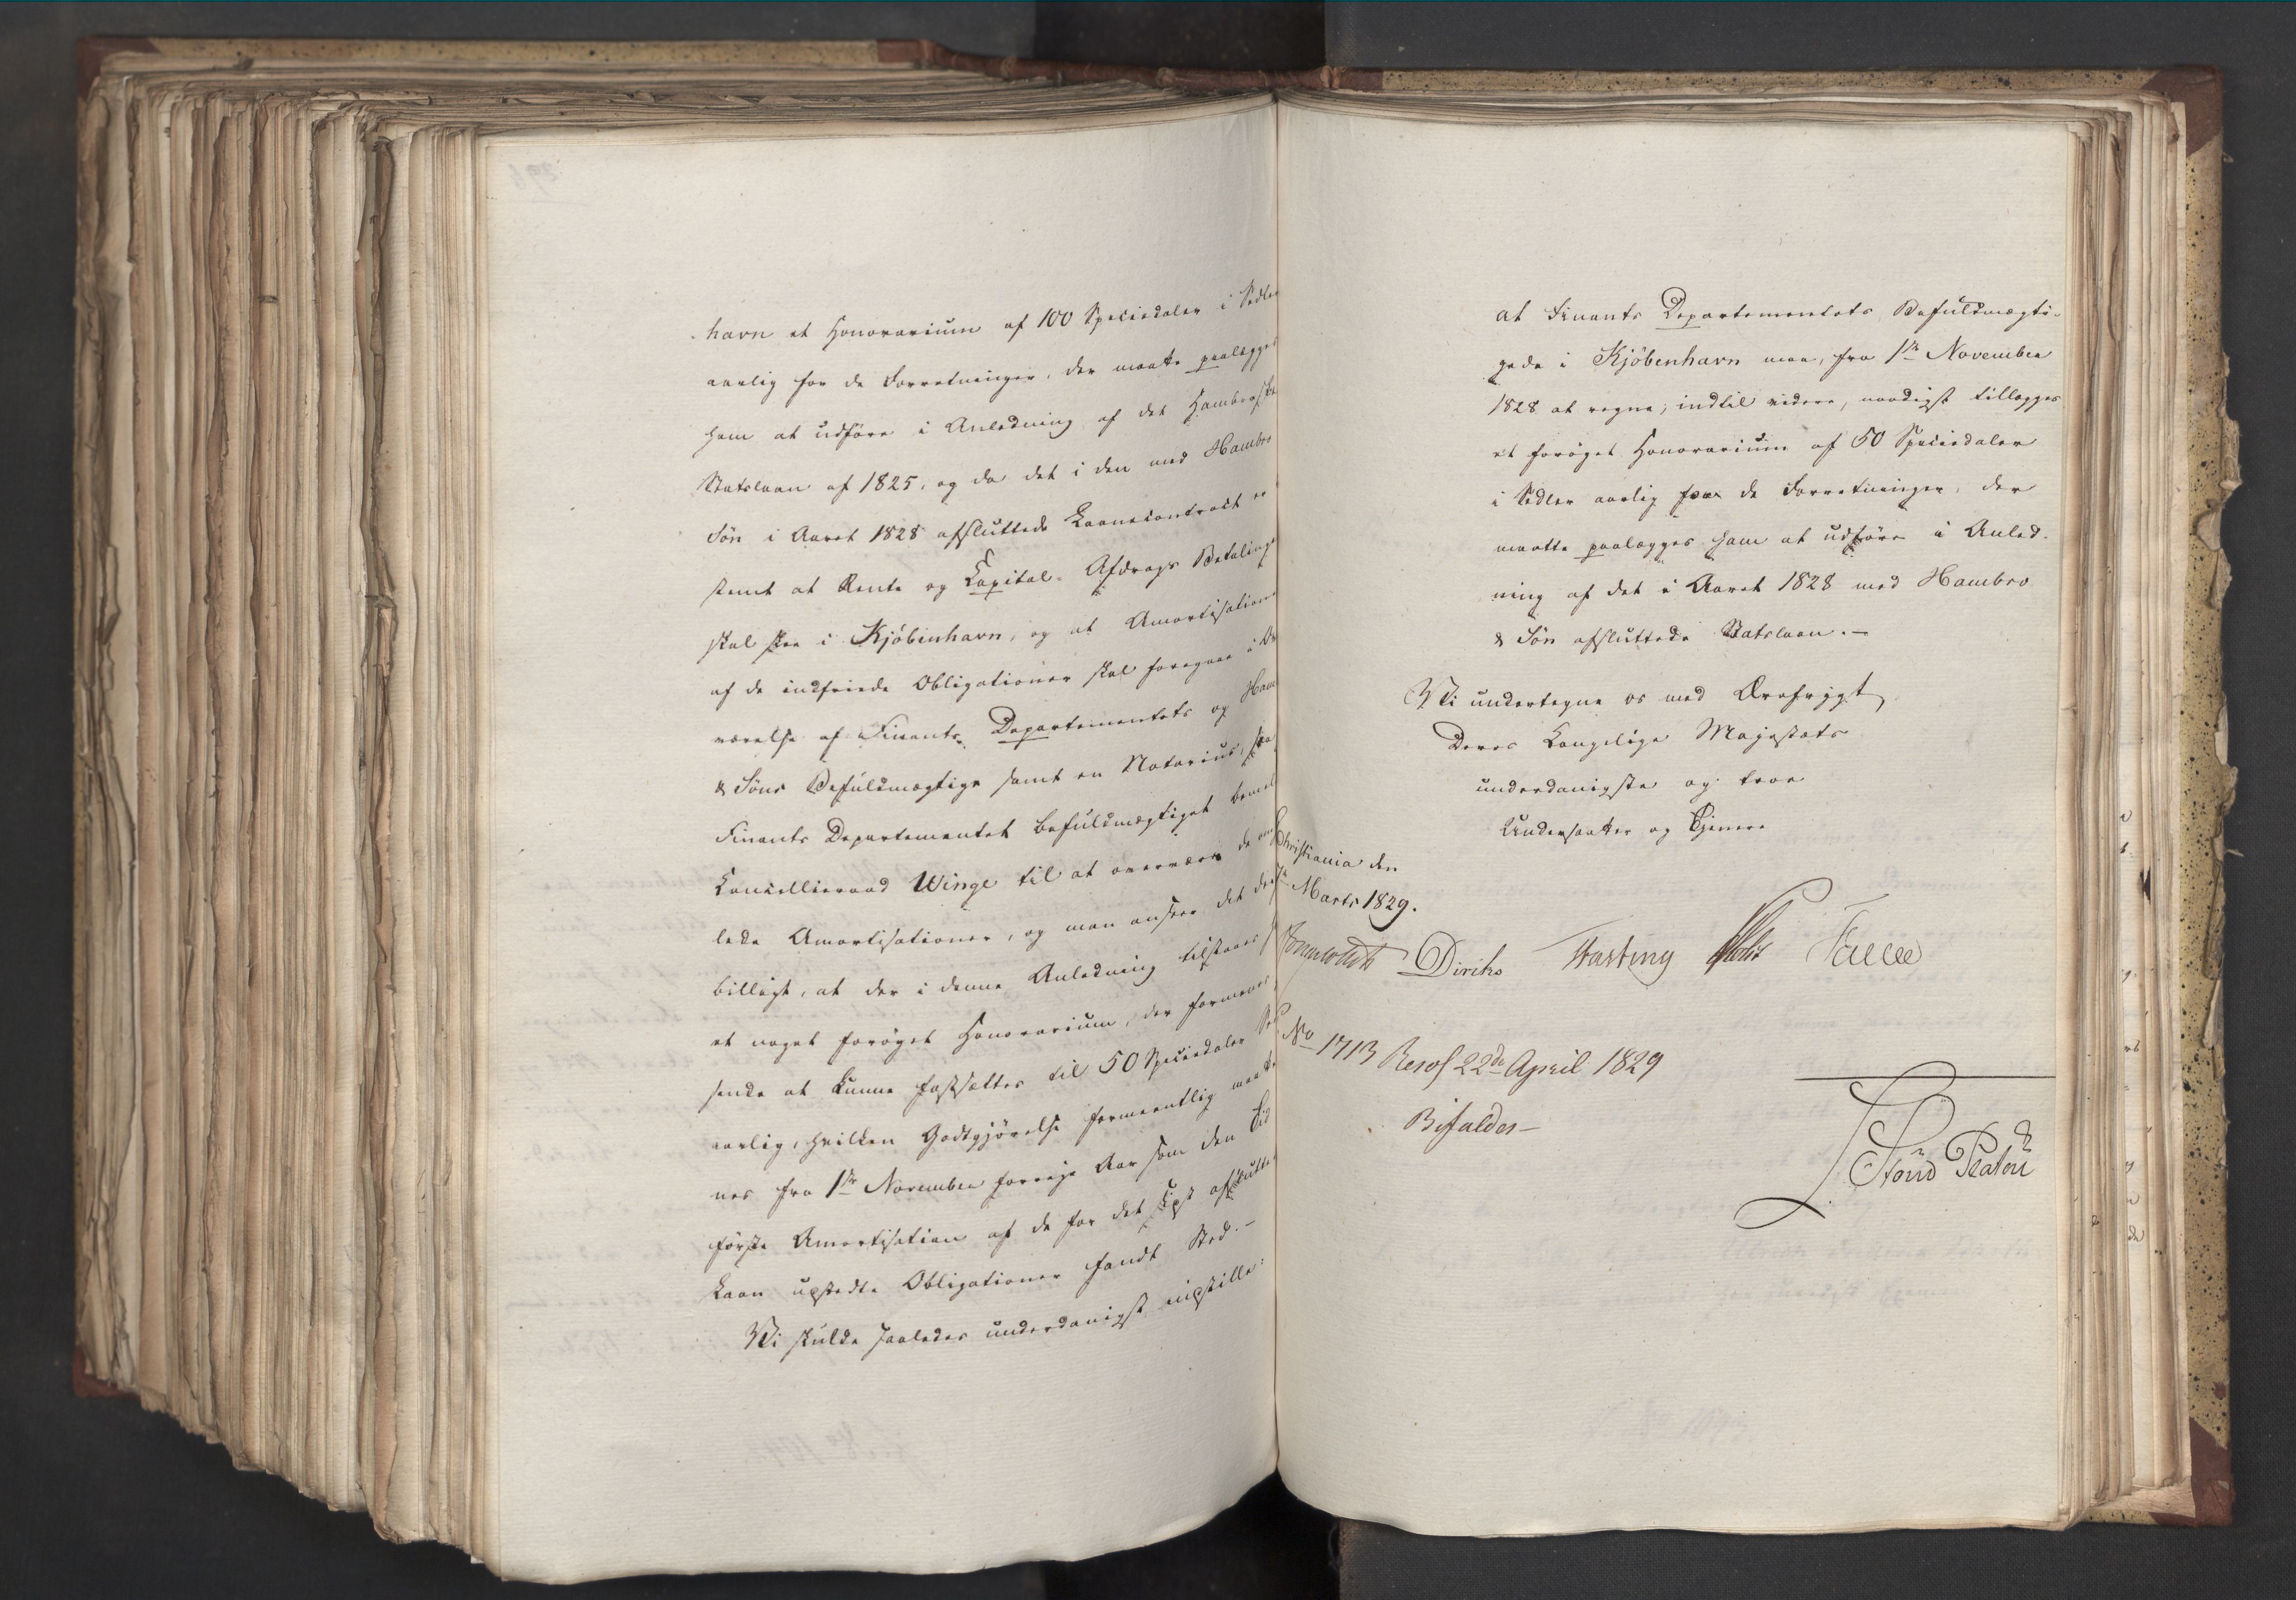 havn et Honorarium af 100 Speciedaler i Sedler
aarlig for de Forretninger, der maatte paalægges
ham at udføre i Anledning af det Hambroske
Statslaan af 1825, og da det i den med Hambro
Søn i Aaret 1828 afsluttede Laanecontract er
stemt at Rente og Capital-Afdrags Betalinger
skal skee i Kjöbenhavn, og at Amortisationen
af de indfriede Obligationer skal foregaae i
værelse af Finants Departementets og Ham
& Söns Befuldmægtige samt en Notarius,
Finants Departementet befuldmægtiget
Cancellieraad Winge til at overvære de
lede Amortisationer, og man anseer det
billigt, at der i denne Anledning tilstaaes
et noget forøget Honorarium, der formenes
sende at kunne fastsættes til 50 Speciedaler
aarlig, hvilken Godtgjörelse formeentlig maatte
nes fra 1ste November forrige Aar som den Tid
förste Amortisation af de for det sidst afsluttede
Laan udstedte Obligationer fandt Sted.—
Vi skulde saaledes underdanigst indstille:
at Finants Departementets Befuldmægti-
gede i Kjöbenhavn maa, fra 1ste November
1828 at regne, indtil videre, naadigst tillægges
et foröget Honorarium af 50 Speciedaler
i Sedler aarlig for de Forretninger, der
maatte paalægges ham at udföre i Anled-
ning af det i Aaret 1828 med Hambro
& Sön afsluttede Statslaan.—
Vi undertegne os med Ærefrygt
Deres Kongelige Majestæts
underdanigste og troe
Undersaatter og Tjenere
Christiania den
Marts 1829.
Diriks Fasting
No 1713 Resol 22de April 1829
Bifaldes—